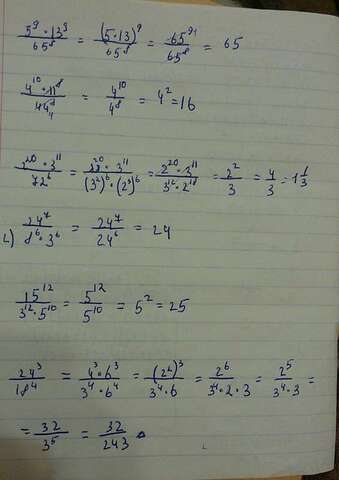 5⁹·13⁹/65⁸ = (5·13)⁹/65⁸ = 65⁹/65⁸ = 65
4¹⁰·11⁸/44⁸ = 4¹⁰/4⁸ = 4² = 16
2²⁰·3¹¹/72⁶ = 2²⁰·3¹¹/(3²)⁶·(2³)⁶ = 2²⁰·3¹¹/3¹²·2¹⁸ = 2²/3 = 4/3 = 1 1/3
2) 24⁷/8⁶·3⁶ = 24⁷/24⁶ = 24
15¹²/3¹²·5¹⁰ = 5¹²/5¹⁰ = 5² = 25
24³/18⁴ = 4³·6³/3⁴·6⁴ = (2²)³/3⁴·6 = 2⁶/3⁴·2·3 = 2⁵/3⁴·3 =
= 32/3⁵ = 32/243